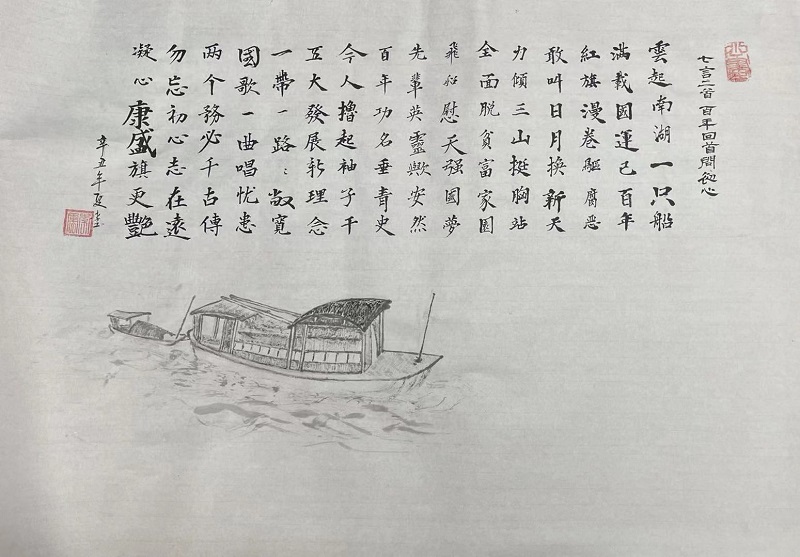 七言二首 百年回首問初心
雲起南湖一只船
滿載國運已百年
紅旗漫卷驅腐惡
敢叫日月換新天
力傾三山挺胸站
全面脫貧富家園
飛船慰天强國夢
先輩英靈歟安然
百年功名垂青史
今人擼起袖子干
五大發展新理念
一帶一路：敞寬
國歌一曲唱忧患
两个務必千古傳
勿忘初心志在遠
凝心康盛旗更艷
辛丑年夏